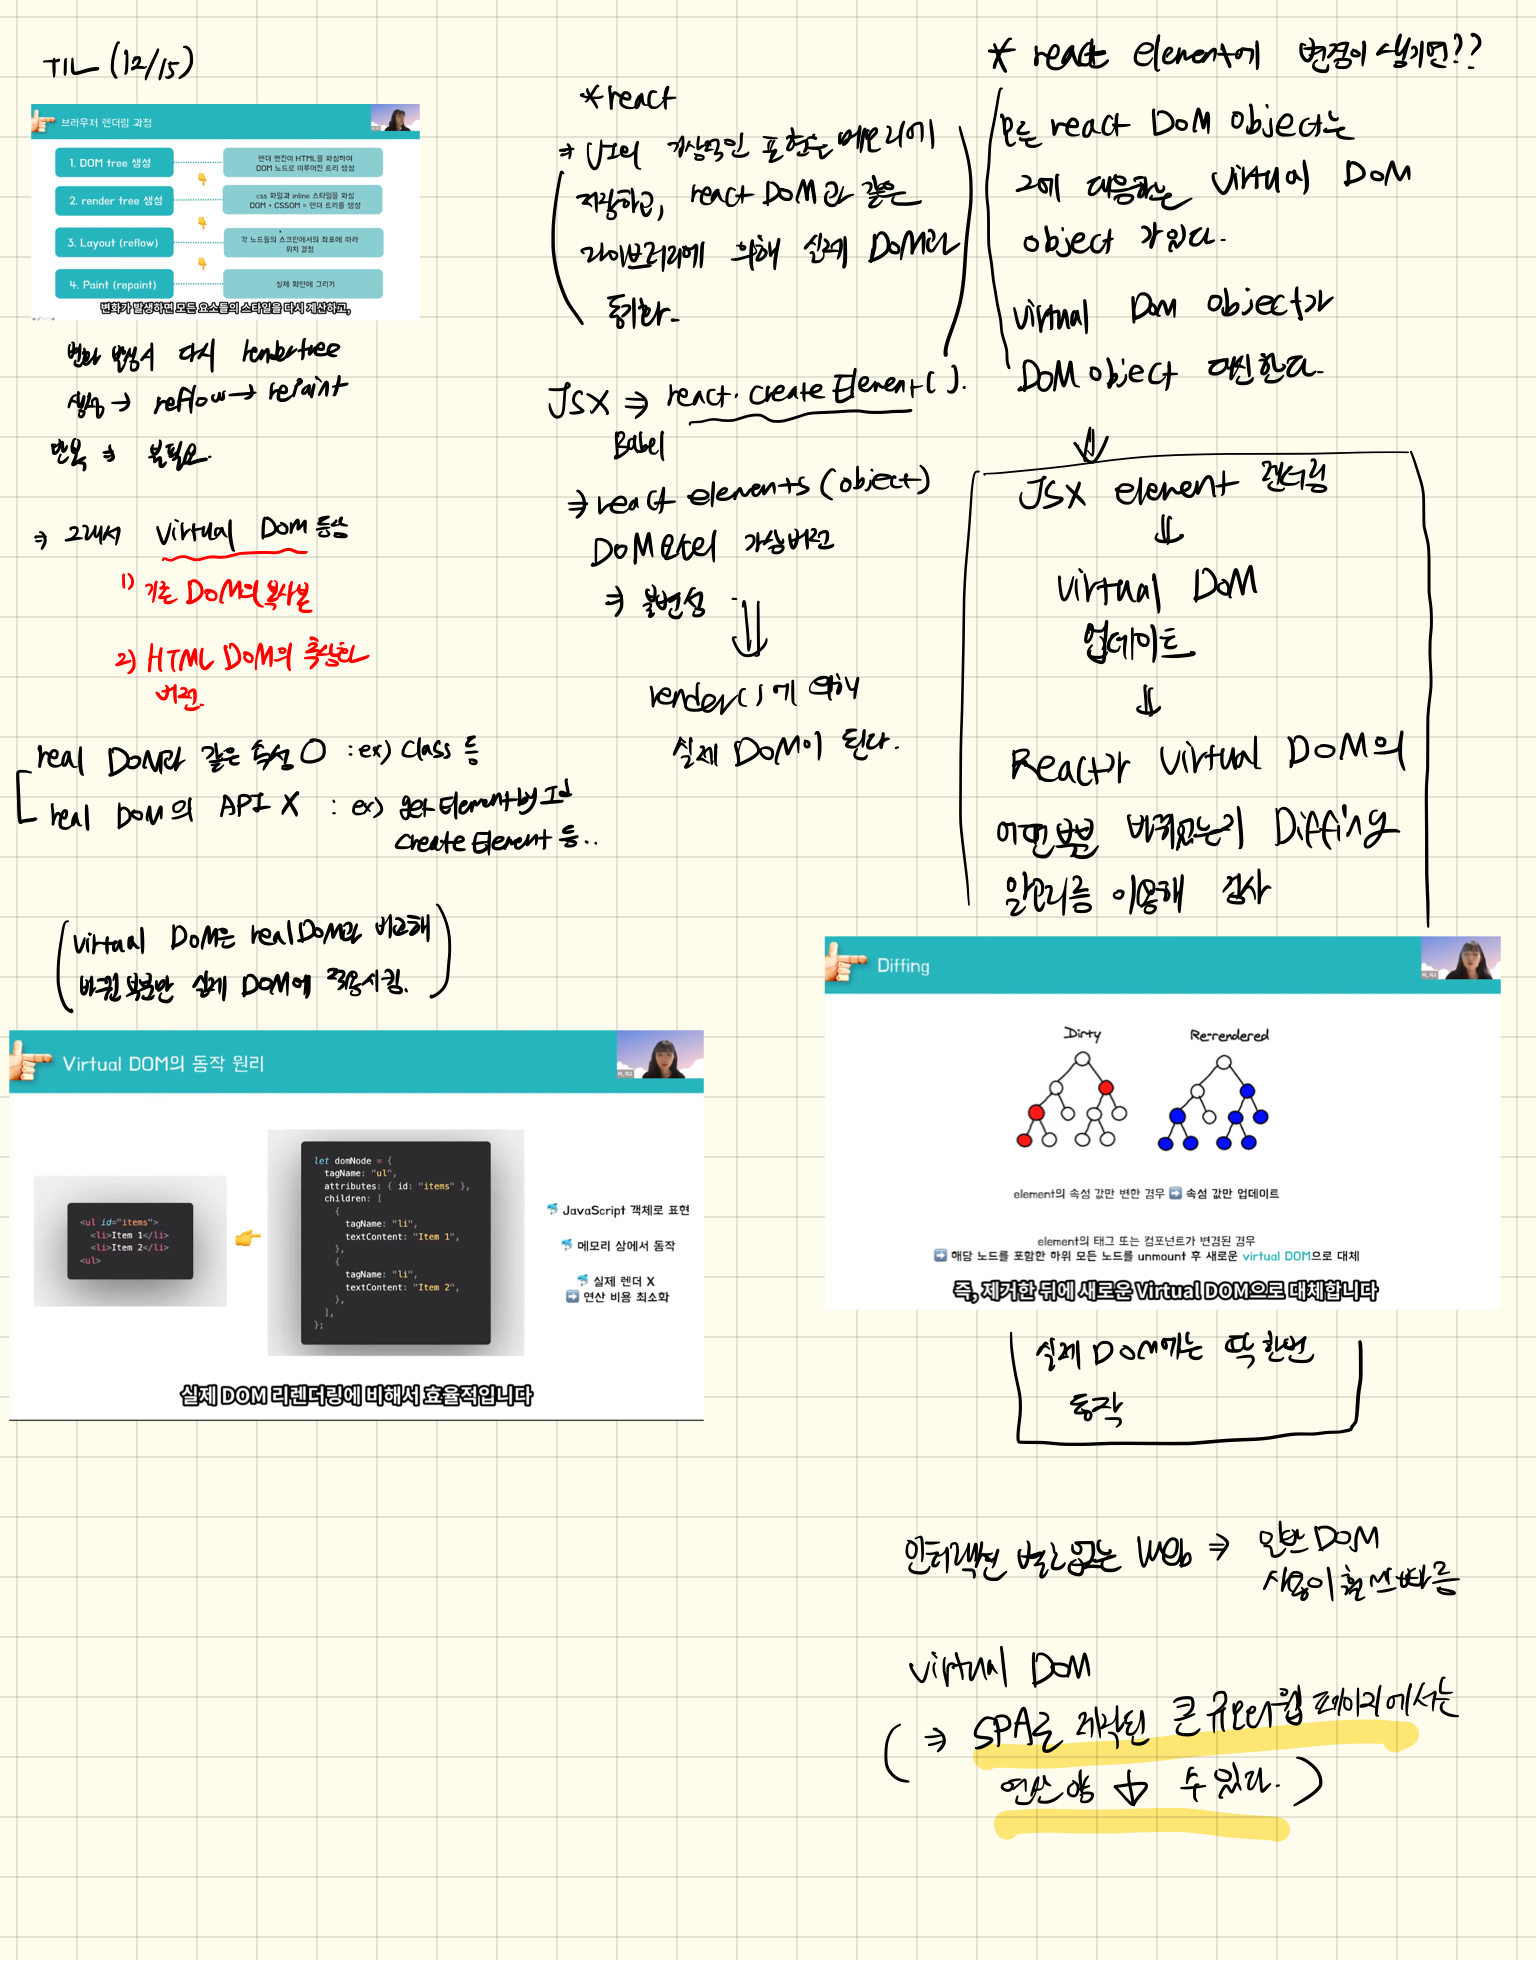 TIL (12/15)
브라우저 렌더링 과정
1. DOM tree 생성
렌더 엔진이 HTML을 파싱하여
DOM 노드로 이루어진 트리 생성
2. render tree 생성
css 파일과 inline 스타일을 파싱
DOM + CSSOM = 렌더 트리를 생성
3. Layout (reflow)
각 노드들의 스크린에서의 좌표에 따라
위치 결정
4. Paint (repaint)
실제 화면에 그리기
변화가 발생하면 모든 요소들의 스타일을 다시 계산하고,
변화 발생시 다시 rendertree
생성 → reflow → repaint
반복 ⇒ 불필요.
⇒ 그래서 Virtual Dom 등장
1) 기존 DOM의 복사본
2) HTML DOM의 추상화
버전.
real DOM과 같은 속성 O : ex) Class 등
real DOM의 API X : ex) getElementbyId
createElement 등..
(virtual DOM은 realDOM과 비교해
바뀐 부분만 실제 DOM에 적용시킴.)
Virtual DOM의 동작 원리
<ul id="items">
<li>Item 1</li>
<li>Item 2</li>
<ul>
let domNode = {
tagName: "ul",
attributes: { id: "items" },
children: [
{
tagName: "li",
textContent: "Item 1",
},
{
tagName: "li",
textContent: "Item 2",
},
],
};
JavaScript 객체로 표현
메모리 상에서 동작
실제 렌더 X
➡ 연산 비용 최소화
실제 DOM 리렌더링에 비해서 효율적입니다
*react
⇒ UI의 가상적인 표현을 메모리에
저장하고, react DOM과 같은
라이브러리에 의해 실제 DOM과
동기화.
JSX ⇒ react.createElement().
Babel
⇒ react elements (object)
DOM 가상버전
⇒ 불변성
render()에 의해
실제 DOM이 된다.
* react element에 변경이 생기면??
모든 react DOM object는
그에 대응하는 virtual DOM
object 가 있다.
virtual Dom object가
DOM object 대신한다.
⇓
JSX element 렌더링
⇓
virtual DOM
업데이트
⇓
React가 virtual DOM의
어떤부분 바뀌었는지 Diffing
알고리즘 이용해 검사
Diffing
Dirty
Re-rendered
element의 속성 값만 변한 경우 ➡ 속성 값만 업데이트
element의 태그 또는 컴포넌트가 변경된 경우
➡ 해당 노드를 포함한 하위 모든 노드를 unmount 후 새로운 virtual DOM으로 대체
즉, 제거한 뒤에 새로운 Virtual DOM으로 대체합니다
실제 DOM에는 딱 한번
동작
인터랙션 별로없는 Web ⇒ 일반 DOM
사용이 훨씬 빠름
virtual DOM
(⇒ SPA로 제작된 큰 규모의 웹 페이지에서는
연산양 ↓ 수 있다.)